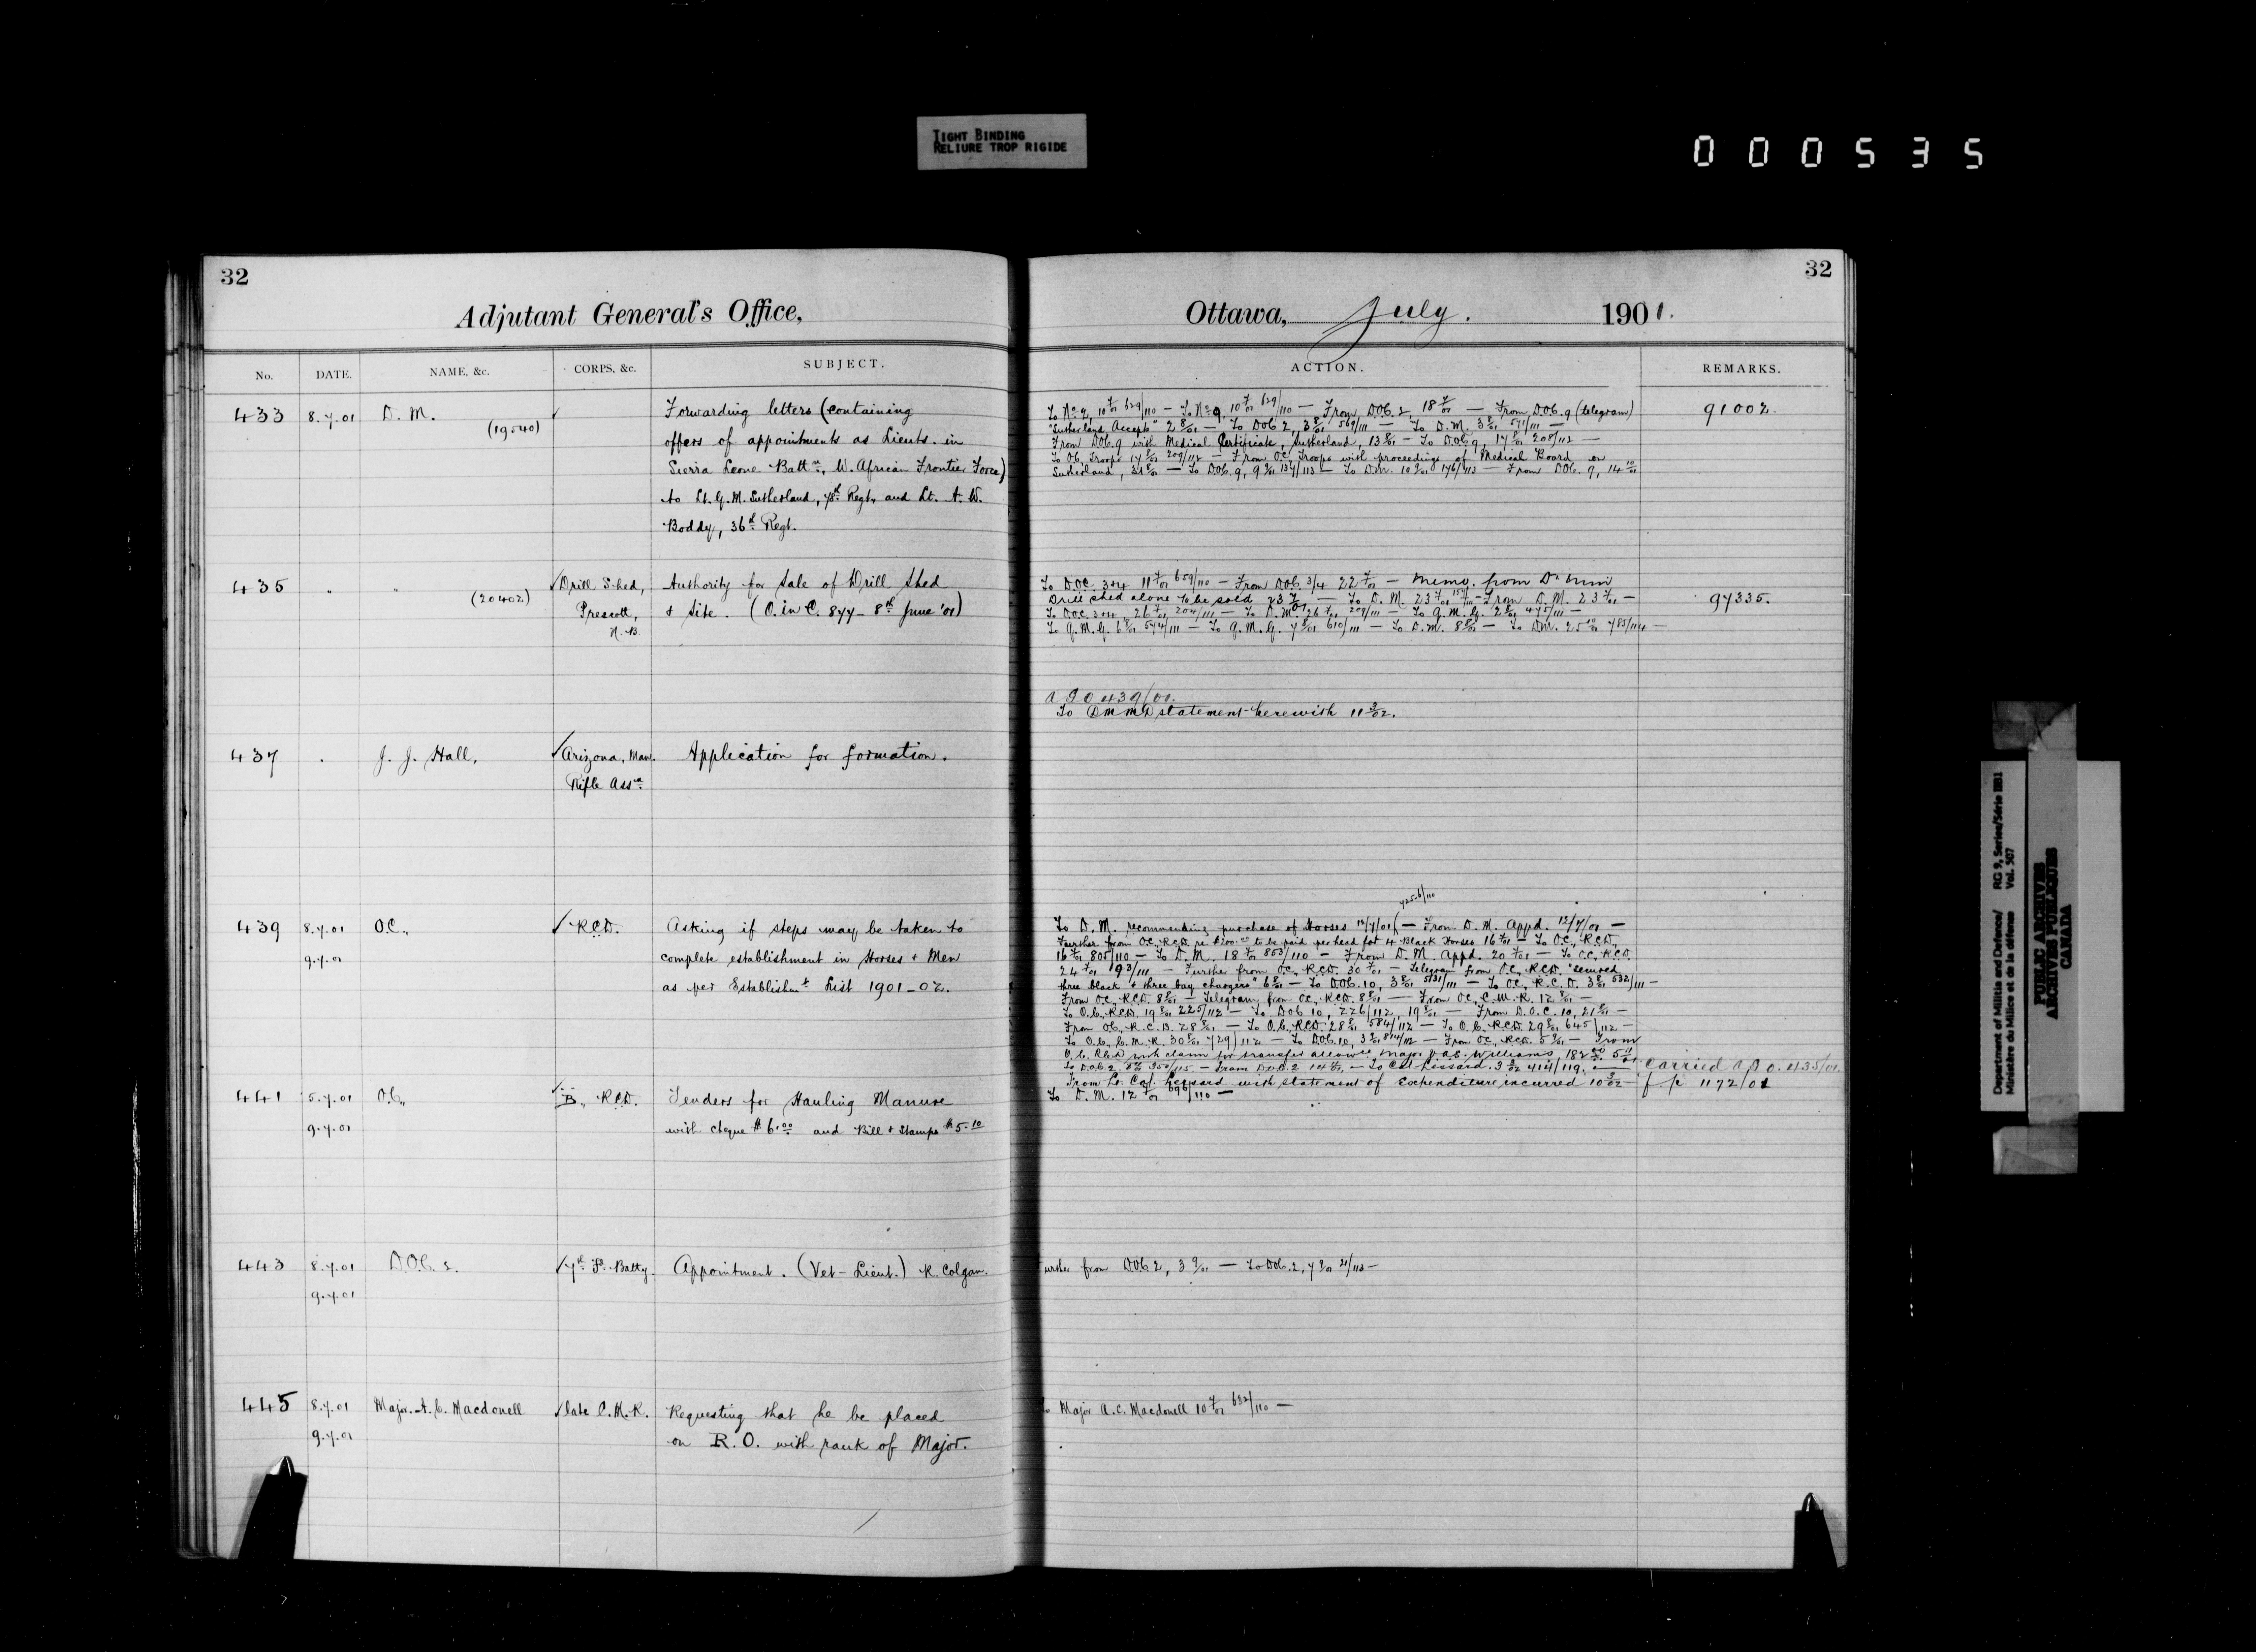 TIGHT BINDING
RELIURE TROP RIGIDE
000535
32
Adjutant General's Office,
No. DATE. NAME, &c. CORPS, &c. SUBJECT.
433 8.7.01 D. M. Forwarding letters (containing
(19540) offers of appointments as Lieuts. in
Sierra Leone Battn., W. African Frontier Force)
to Lt. G. M. Sutherland, 78th Regt, and Lt. A. W.
Boddy, 36th Regt.
435 " " Drill Shed, Authority for Sale of Drill Shed
(20402) Prescott, & Site. (O. in C. 877 - 8th June '01)
N. B.
437 . J. J. Hall, Arizona, Man. Application for formation.
Rifle Assn.
439 8.7.01 O.C., R.C.D. Asking if steps may be taken to
9.7.01 complete establishment in Horses & Men
as per Establishmt List 1901-02.
441 5.7.01 O.C., "B", R.C.D. Tenders for Hauling Manure
9.7.01 with cheque $6.00 and Bill & Stamps $5.10
443 8.7.01 D.O.C. 2. 7th Fd. Batty. Appointment. (Vet-Lieut.) R. Colgan.
9.7.01
445 8.7.01 Major. A. C. Macdonell late C.M.R. Requesting that he be placed
9.7.01 on R.O. with rank of Major.
32
Ottawa, July. 1901.
ACTION. REMARKS.
To No 2, 10 7/01 629/110 — To No 9, 10 7/01 629/110 — From DOC. 2, 18 7/01 — From D.O.C. 9 (telegram) 91002
"Sutherland Accepts" 2 8/01 — To DOC 2, 3 8/01 569/111 — To D.M. 3 8/01 571/111 —
From DOC. 9 with Medical Certificate, Sutherland, 13 8/01 — To D.O.C. 9, 17 8/01 208/112 —
To O.C. Troops 17 8/01 209/112 — From O.C. Troops with proceedings of Medical Board on
Sutherland, 31 8/01 — To DOC. 9, 9 9/01 137/113 — To DM. 10 9/01 176/113 — From DOC. 9, 14 10/01
To D.O.C. 3&4 11 7/01 659/110 — From DOC 3/4 22 7/01 — Memo. from
Drill shed alone to be sold 23 7/01 — To D. M. 23 7/01 — From D. M. 23 7/01 — 97335.
To D.O.C. 3&4, 26 7/01 204/111 — To D.M. 26 7/01 209/111 — To Q.M.G. 2 8/01 475/111 —
To Q.M.G. 6 8/01 574/111 — To Q.M.G. 7 8/01 610/111 — To D.M. 8 8/01 — To DM. 25 10/01 785/114 —
439/01.
To DMMD statement herewith 11 3/02.
To D. M. recommending purchase of Horses 12/7/01 — From D. M. Appd. 12/7/01 —
Further from O.C. R.C.D. re $200.00 to be paid per head for 4 Black Horses 16 7/01 — To O.C., R.C.D.,
16 7/01 805/110 — To D. M. 18 7/01 853/110 — From D. M. Appd. 20 7/01 — To O.C., R.C.D.
24 7/01 193/111 — Further from O.C., R.C.D. 30 7/01 — Telegram from O.C., R.C.D. "secured
three black & three bay chargers" 6 8/01 — To DOC. 10, 3 8/01 531/111 — To O.C., R.C.D. 3 8/01 532/111 —
From O.C., R.C.D. 8 8/01 — Telegram from O.C., R.C.D. 8 8/01 — From O.C., C.M.R. 12 8/01 —
To O.C., R.C.D. 19 8/01 225/112 — To DOC 10, 226/112, 19 8/01 — From D.O.C. 10, 21 8/01 —
From O.C., R.C.D. 28 8/01 — To O.C., R.C.D. 28 8/01 584/112 — To O.C. R.C.D. 29 8/01 645/112 —
To O.C., C.M.R. 30 8/01 729/112 — To DOC. 10, 3 9/01 — From O.C., R.C.D. 5 9/01 — From
O.C. R.C.D. with claim for transfer allowce Major V.A.S. Williams,
To Col. Lessard. 3 3/02 414/119. — Carried
From Lt. Col. Lessard with statement of Expenditure incurred 10 3/02 — 1172/01
To D. M. 12 7/01 696/110 —
Further from DOC. 2, 3 9/01 — To DOC. 2, 7 9/01 21/113 —
To Major A. C. Macdonell 10 7/01 632/110 —
Department of Militia and Defence/ RG 9, Series/Série IIB1
Ministère du Milice et de la défense Vol. 507
PUBLIC ARCHIVES
ARCHIVES PUBLIQUES
CANADA